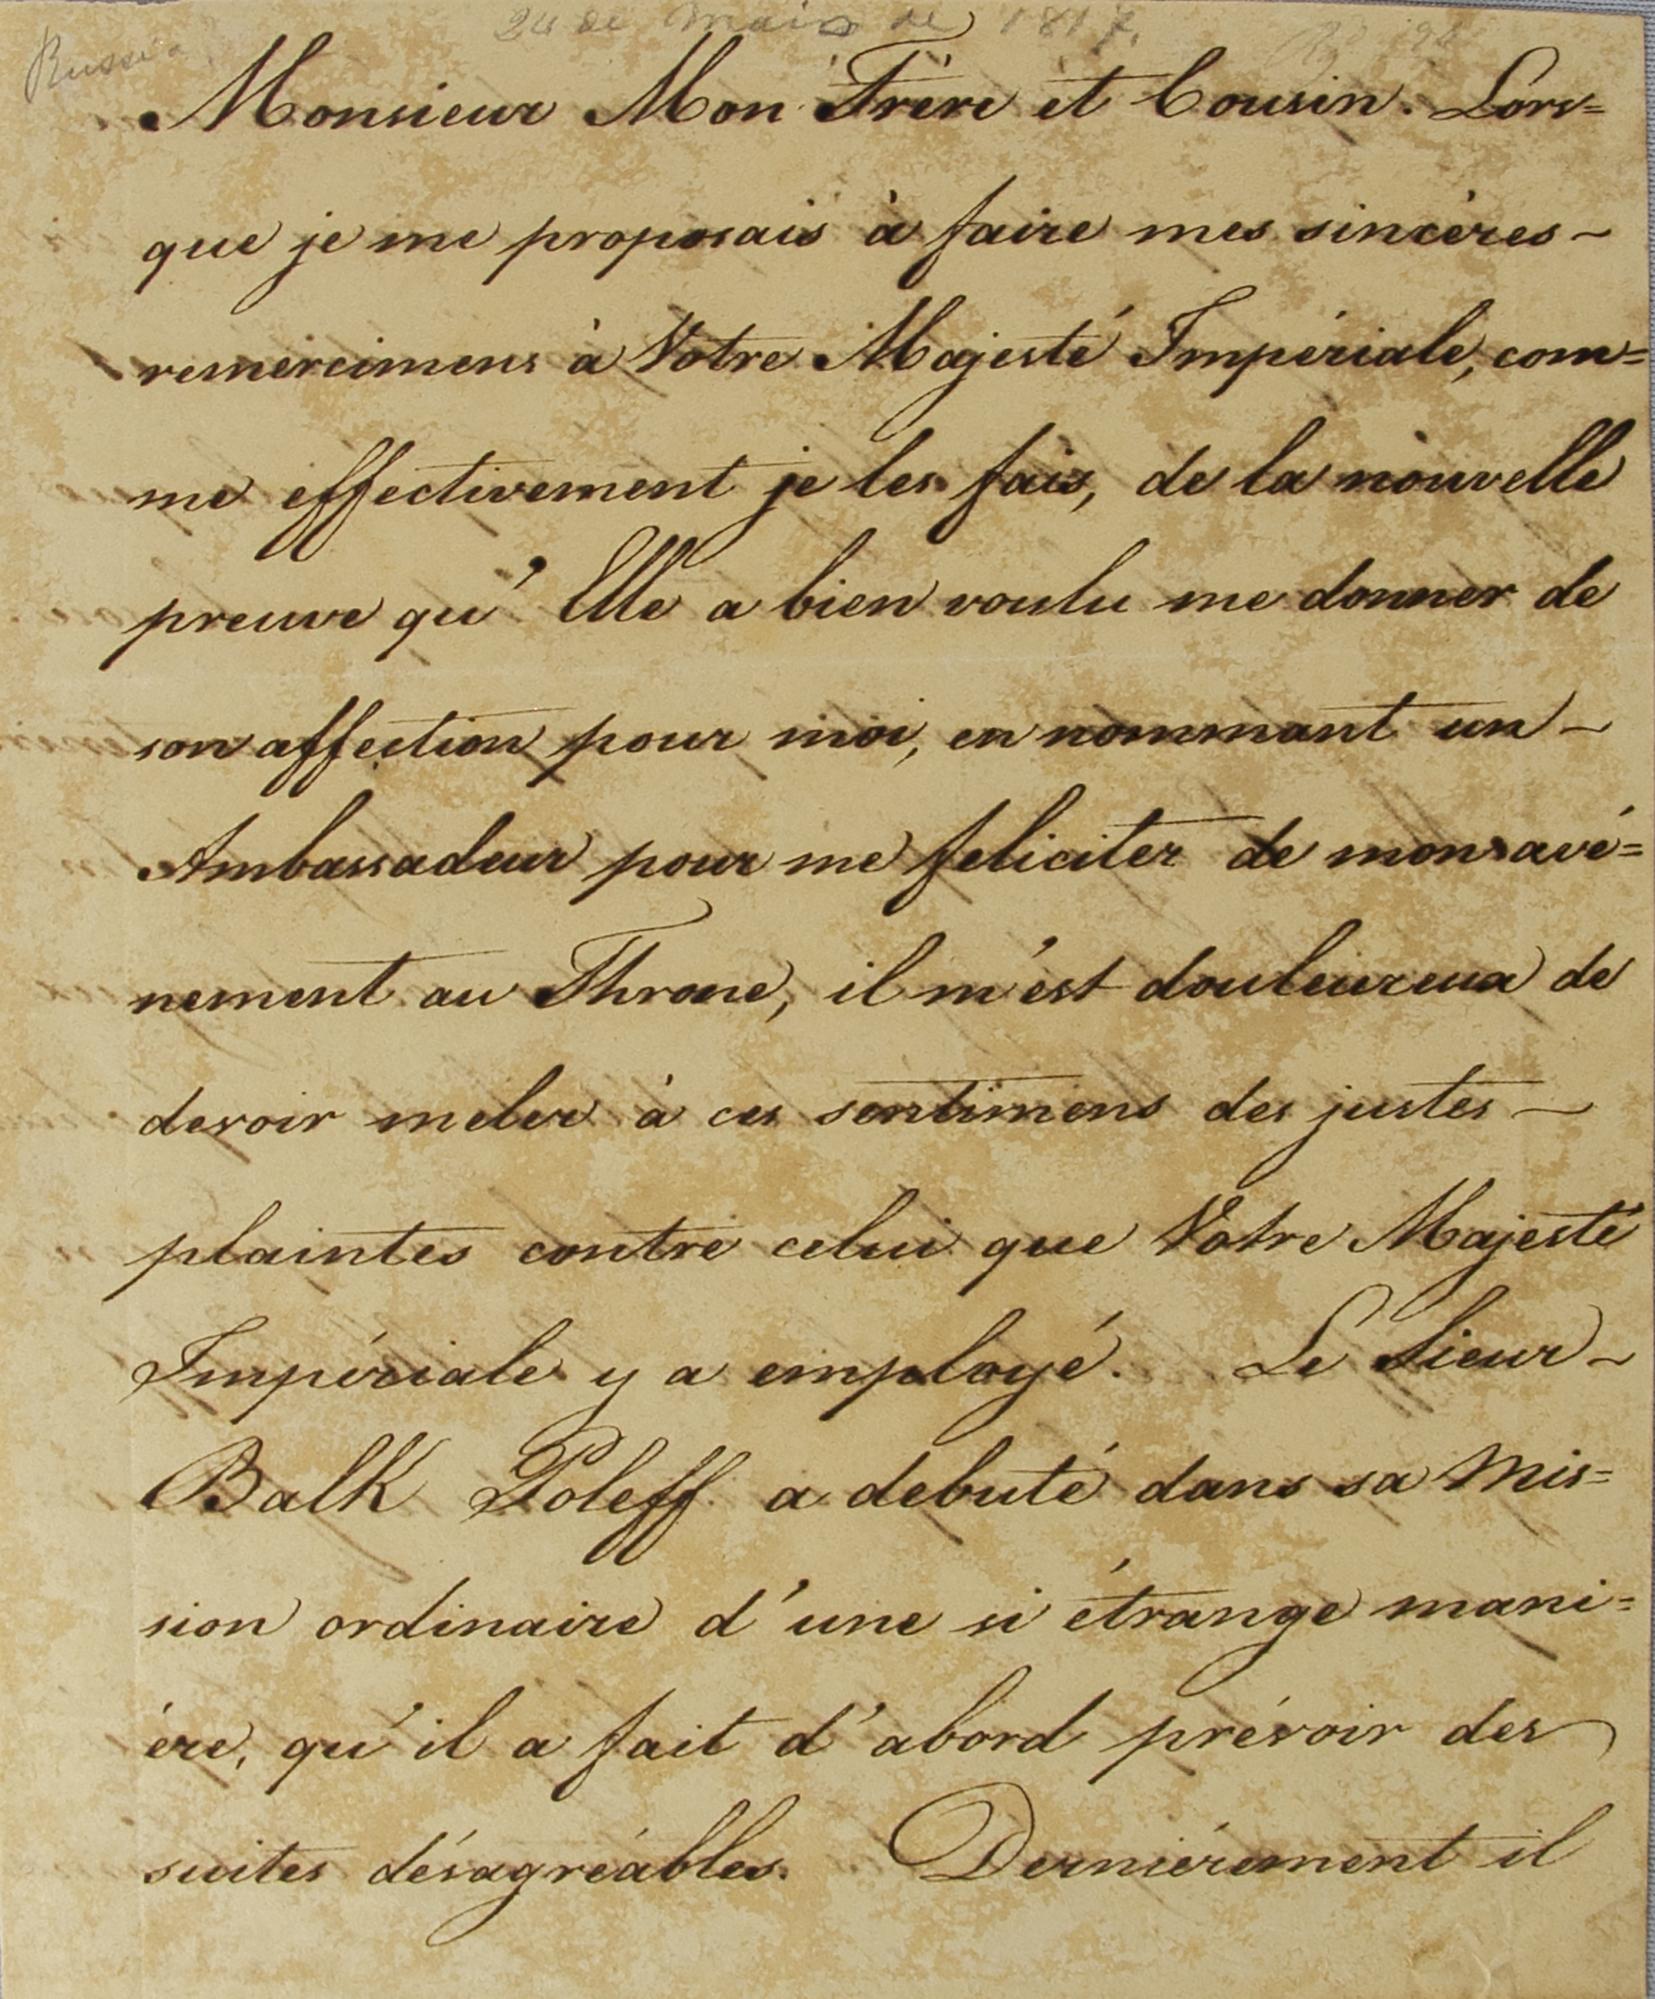 Russia
24 de Maio de 1817.
Monsieur Mon Frère et Cousin. Lors=
que je me proposais à faire mes sincères
remercimens à Votre Majesté Impériale, com=
me effectivement je les fais, de la nouvelle
preuve qu'Elle a bien voulu me donner de
son affection pour moi, en nommant un
Ambassadeur pour me feliciter de mon avé=
nement au Throne, il m'est douloureux de
devoir meler à ces sentimens des justes
plaintes contre celui que Votre Majesté
Impériale y a employé. Le Sieur
Balk Poleff a debuté dans sa Mis=
sion ordinaire d'une si étrange mani=
ère, qu'il a fait d'abord prévoir des
suites désagréables. Derniérement il